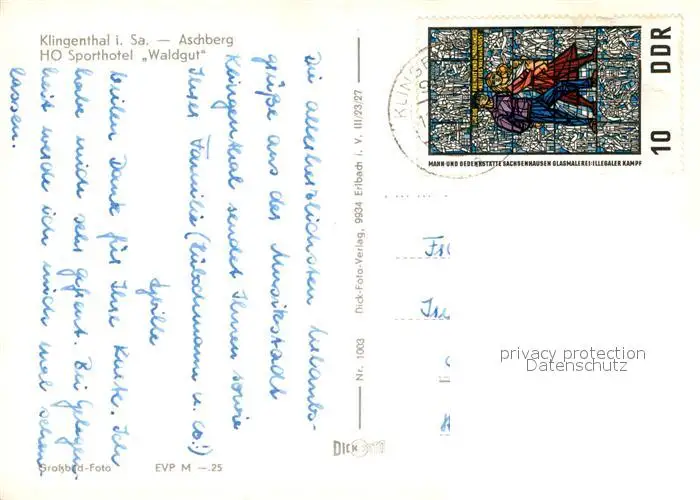 Klingenthal i. Sa. — Aschberg
HO Sporthotel „Waldgut"
Die allerherzlichsten Urlaubs-
grüße aus der Musikstadt
Klingenthal sendet Ihnen sowie
Ihrer Familie (Lübschmann u. Co!)
Sybille
Vielen Dank für Ihre Karte. Ich
habe mich sehr gefreut. Bei Gelegen-
heit werde ich mich mal sehen
lassen.
Großbild-Foto EVP M —.25
Nr. 1003 Dick-Foto-Verlag, 9934 Erlbach i. V. III/23/27
DICK
KLINGE
MAHN-UND GEDENKSTÄTTE SACHSENHAUSEN GLASMALEREI: ILLEGALER KAMPF
10 DDR
privacy protection
Datenschutz